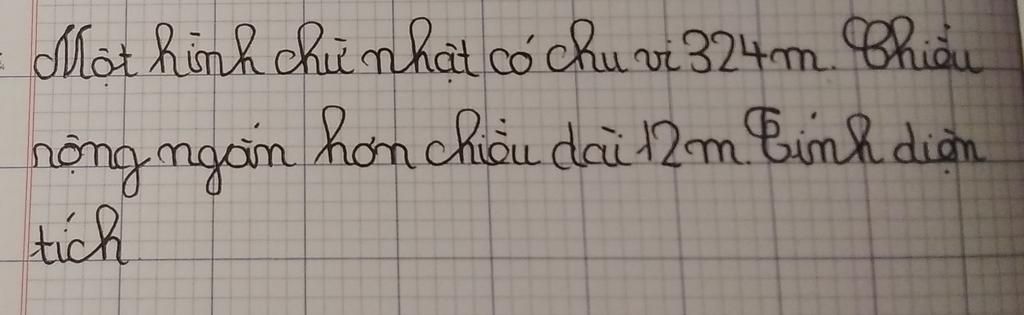 Một hình chữ nhật có chu vi 324m. Chiều
rộng ngắn hơn chiều dài 12m. Tính diện
tích